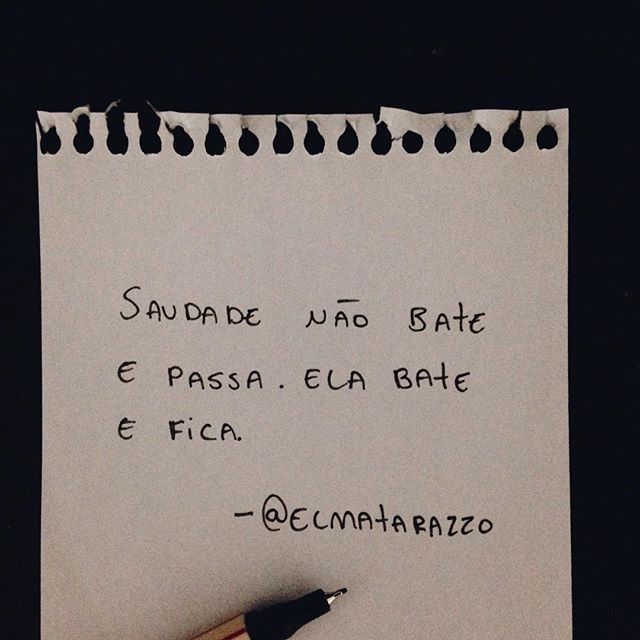 SAUDADE NÃO BATE
E PASSA. ELA BATE
E FICA.
-@ECMATARAZZO